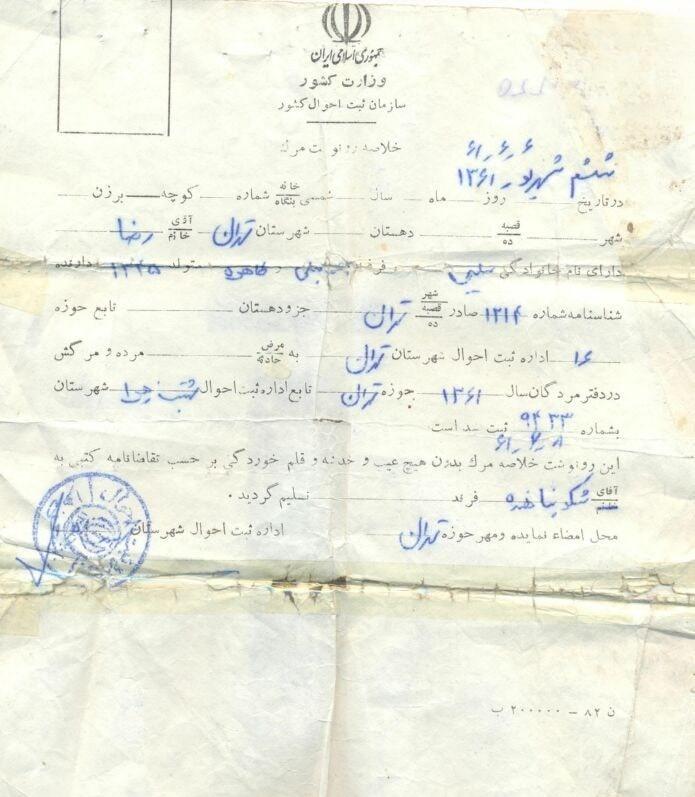 جمهوری اسلامی ایران
وزارت کشور
سازمان ثبت احوال کشور
خلاصه رونوشت مرگ
۶ر۶ر۶۱
درتاریخ ششم شهریور ۱۳۶۱ روز ماه سال شمسی خانه بنگاه شماره کوچه برزن
شهر قصبه ده دهستان شهرستان تهران آقای خانم رضا
دارای نام خانوادگی سلیمی و فرزند و طاهره متولد ۱۳۴۵ دارنده
شناسنامه شماره ۱۲۱۴ صادر شهر قصبه ده تهران جزو دهستان تابع حوزه
۱۶ اداره ثبت احوال شهرستان تهران به مرض حادثه مرده و مرگش
در دفتر مردگان سال ۱۳۶۱ حوزه تهران تابع اداره ثبت احوال شهرستان
بشماره ۹۴۳۳ ثبت شد است
این رونوشت خلاصه مرگ بدون هیچ عیب و خدشه و قلم خوردگی بر حسب تقاضانامه کتبی به
آقای خانم فرزند تسلیم گردید .
محل امضاء نماینده و مهر حوزه تهران اداره ثبت احوال شهرستان
ن ۸۲ – ۲۰۰۰۰۰ ب